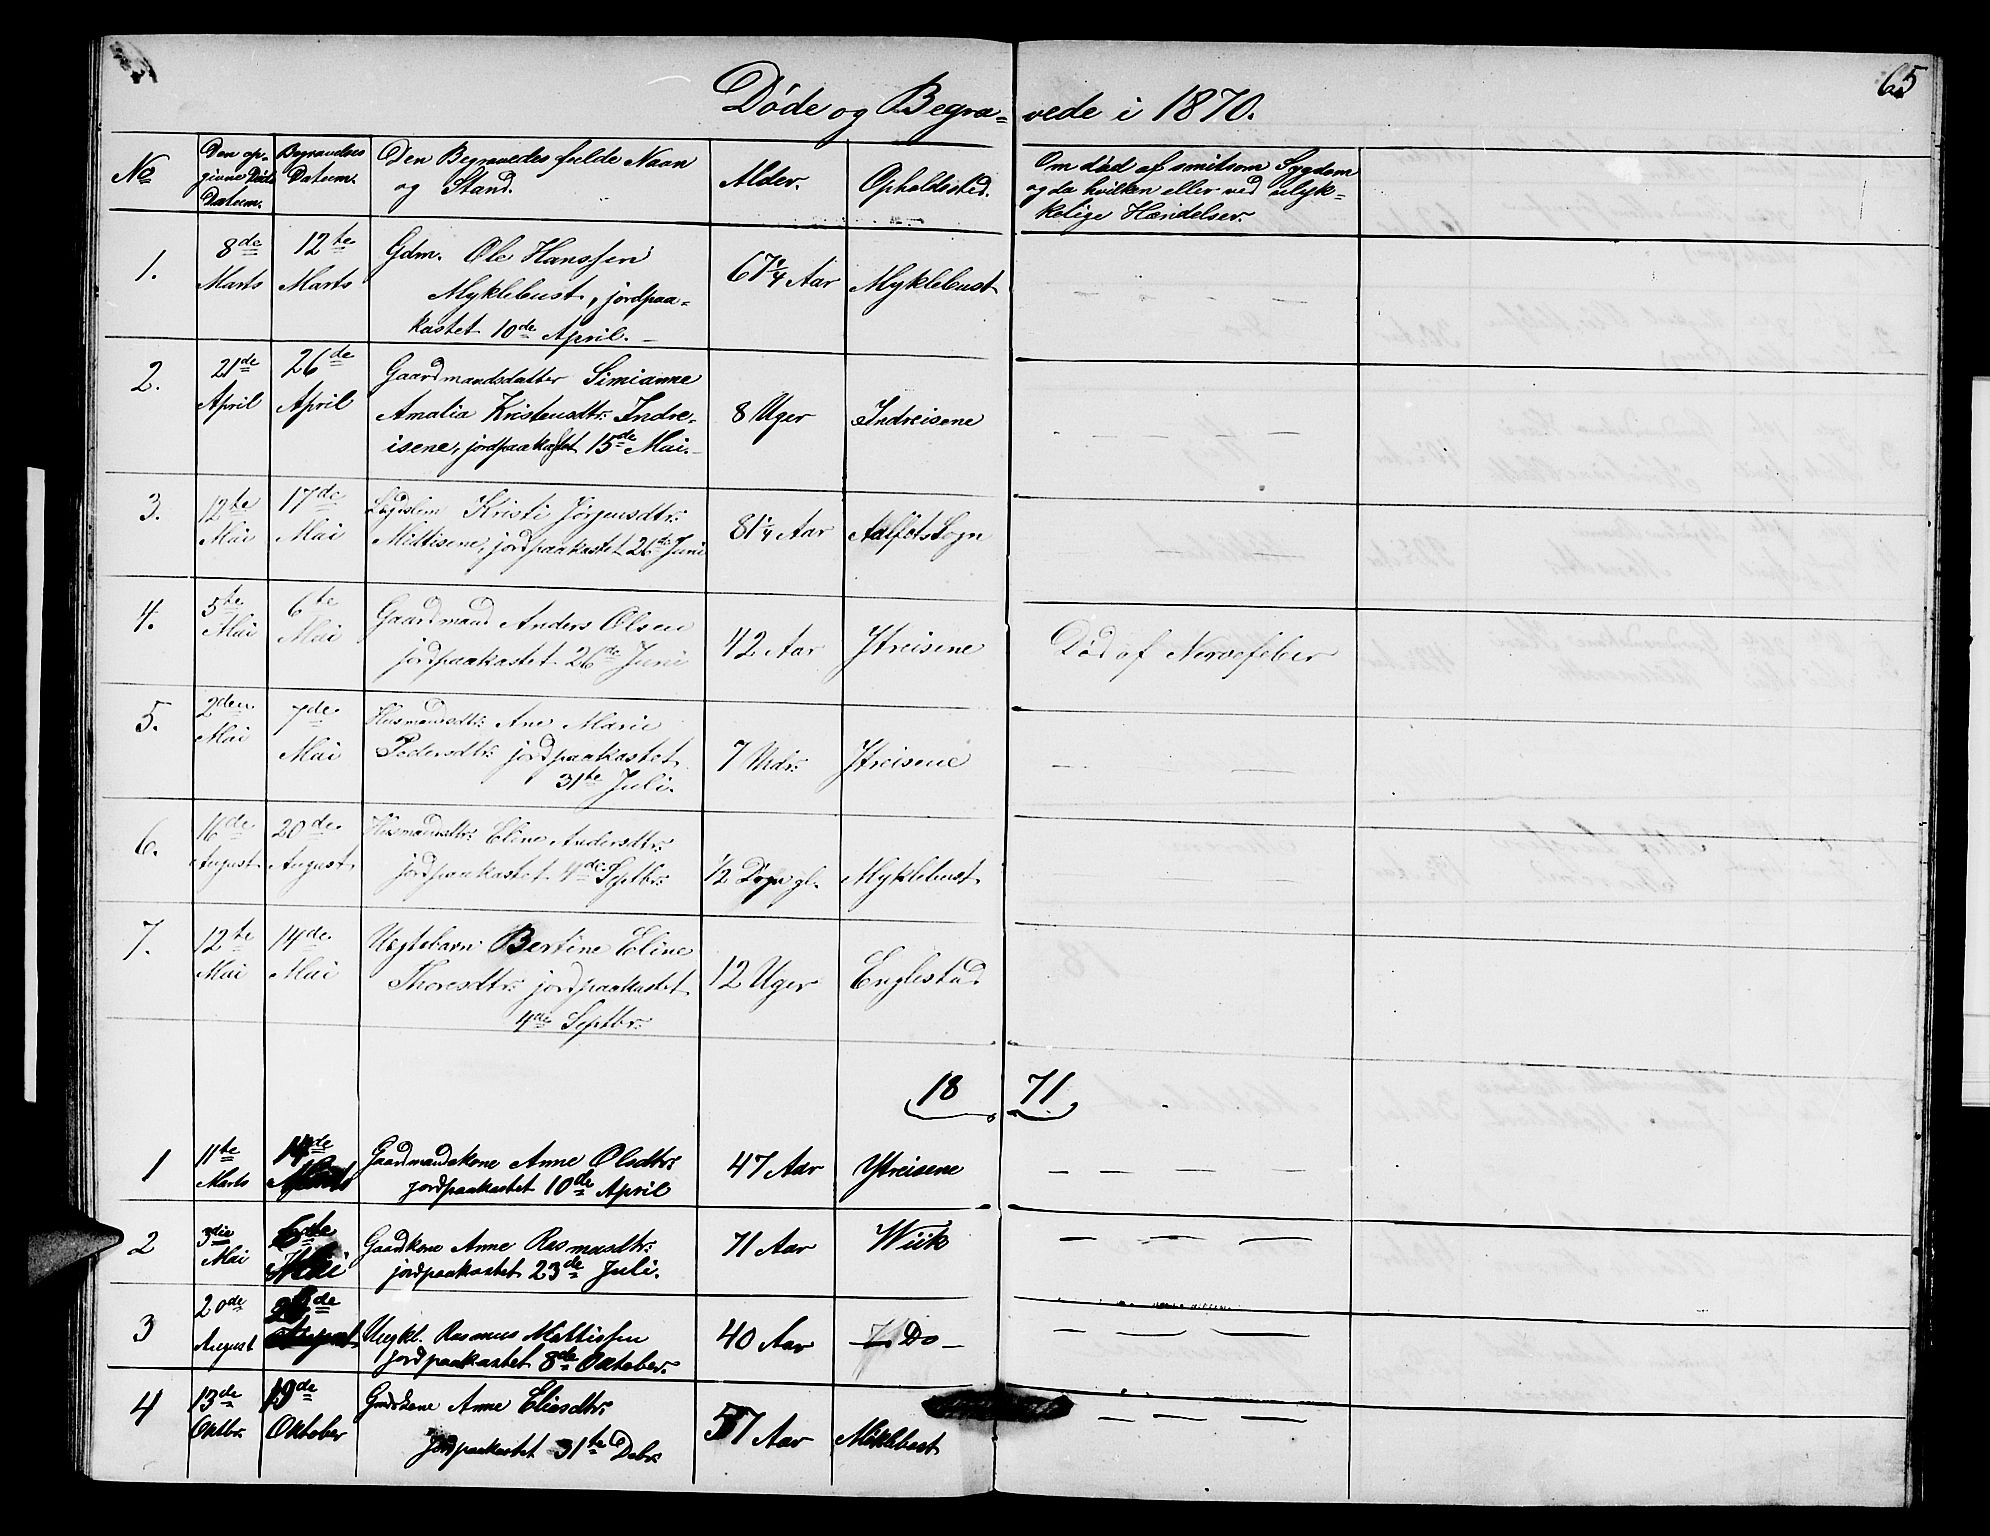 65
Døde og Begra=vede i 1870.
No
Den op-
givne Døds
Datum.
Begravelses
Datum.
Den Begravedes fulde Navn
og Stand.
Alder.
Opholdssted.
Om død af smitsom Sygdom
og da hvilken eller ved ulyk-
kelige Hændelser.
1.
8de
Marts
12te
Marts
Gdm. Ole Hanssen
Myklebust, jordpaa-
kastet 10de April. –
67 1/4 Aar
Myklebust
– – –
2.
21de
April
26de
April
Gaardmandsdatter Simianne
Amalia Kristensdtr: Indre-
isene, jordpaakastet 15de Mai. –
8 Uger
Indreisene
– – –
3.
12te
Mai
17de
Mai
Lægdslem Kristi Jørgensdtr:
Midtisene, jordpaakastet 26de Juni
81 1/4 Aar
Aalfot Sogn
– – –
4.
5te
Mai
6te
Mai
Gaardmand Anders Olsen
jordpaakastet 26de Juni
42 Aar
Ytreisene
Død af Nervefeber
5.
2den
Mai
7de
Mai
Husmandsdtr: Ane Marie
Pedersdtr: jordpaakastet
31te Juli.
7 Mdr:
Ytreisene
– – –
6.
16de
August
20de
August
Husmandsdtr: Eline Andersdtr:
jordpaakastet 4de Septbr:
1/2 Døgn gl.
Myklebust
7.
12te
Mai
14de
Mai
Uægtebarn Bertine Eline
Thoresdtr: jordpaakastet
4de Septbr:
12 Uger
Englestad
18 71
1
11te
Marts
14de
Marts
Gaardmandskone Anne Olsdtr:
jordpaakastet 10de April
47 Aar
Ytreisene
– – –
2
3die
Mai
6te
Mai
Gaardkone Anne Rasmusdtr:
jordpaakastet 23de Juli.
71 Aar
Wiik
– – –
3
20de
August
August
Ungkl. Rasmus Mattissen
jordpaakastet 8de Oktober.
40 Aar
Do –
– – –
4
13de
Oktbr:
19de
Oktober
Anne Eliasdtr:
jordpaakastet 31te Debr:
57 Aar
Miklebust
– – –